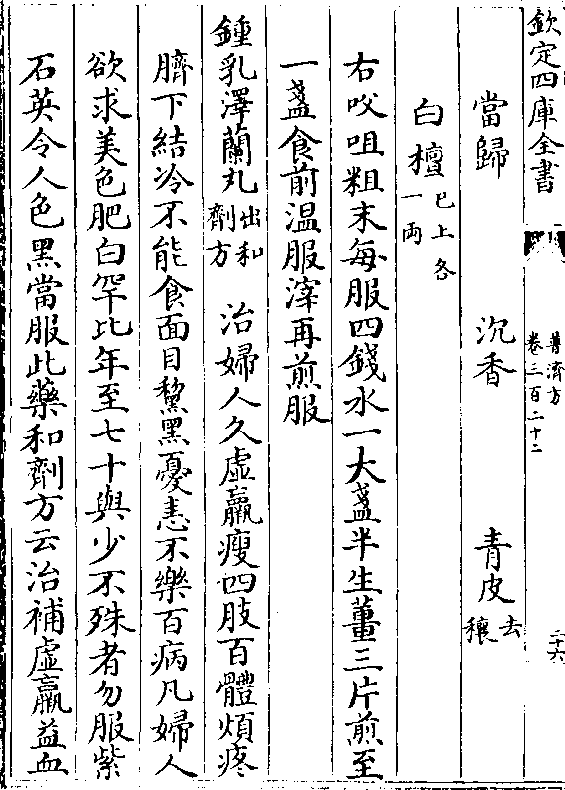 欽定四庫全書
普濟方
卷三百二十二
二十六
當歸 沉香 青皮去穰
白檀已上各一兩
右㕮咀粗末每服四錢水一大盞半生薑三片煎至
一盞食前温服滓再煎服
鍾乳澤蘭丸出和劑方 治婦人久虛羸瘦四肢百體煩疼
臍下結冷不能食面目黧黑憂恚不樂百病凡婦人
欲求美色肥白罕比年至七十與少不殊者勿服紫
石英令人色黑當服此藥和劑方云治補虛羸益血